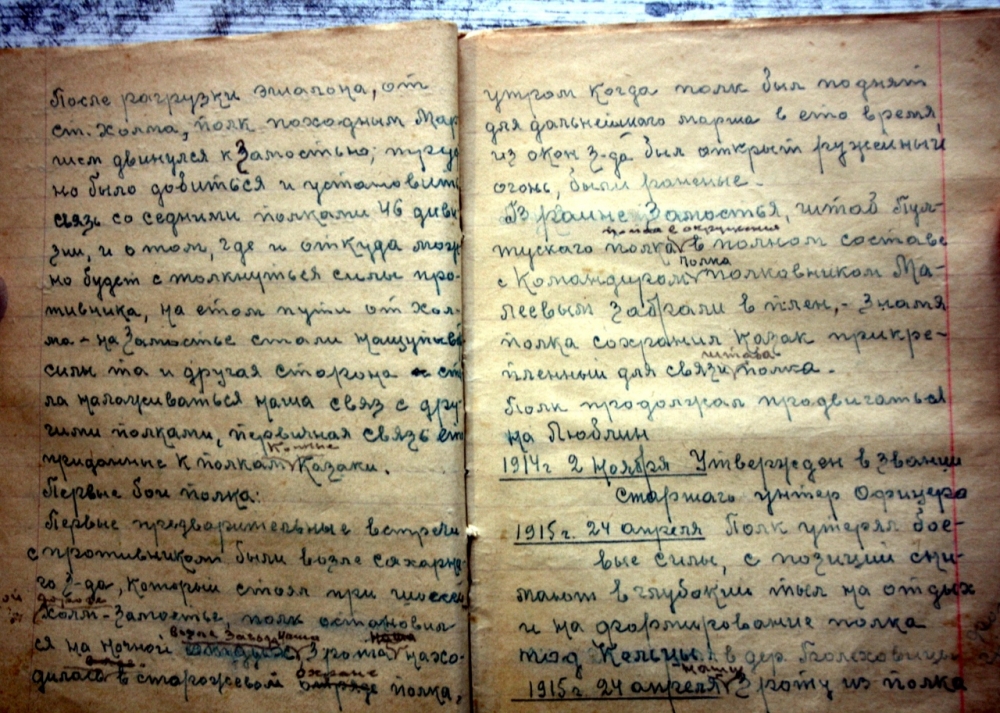 После разгрузки эшалона, от
ст. Холма, полк походным Мар
шем двинулся к Замостью; трудо
но было добиться и установить
связь со седними полками 46 диви
зии, и о том, где и откуда могу
но будет с толкнуться силы про-
тивника, на етом пути от Хол-
ма - на Замостье стали нащупыв
силы та и другая сторона ст
ла налаживаться наша связ с дру
гими полками, первичная связь ето
Конные
приданные к полкам Козаки.
Первые бои полка:
Первые предварительные встречи
с противником были возле сахарно
го З-да, который стоял при шоссей
дороге
Холм-Замостье, полк остановил
возле Загор
ся на ночной отдых, 3 рота нахо-
охране
дилась в сторожевой полка,
утром когда полк был поднят
для дальнейшаго марша в ето время,
из окон З-да был открыт ружейный
огонь, были раненые.
В раине Замостья, штаб Пул-
попал в окружения
тускаго полка в полном составе
полка
с Командиром полковником Ма-
леевым забрали в плен,- Знамя
полка сохранил козак прикре-
штаба
пленный для связи полка.
Полк продолжал продвигаться
на Люблин
1914г 2 ноября Утвержден в звании
старшаго унтер Офицера
1915г. 24 апреля Полк утерял бое-
вые силы, с позиций сни-
мают в глубокий тыл на отдых
и на формирование полка
под Кельцы в дер. Болеховицы
нашу
1915г. 24 апреля 3 роту из полка